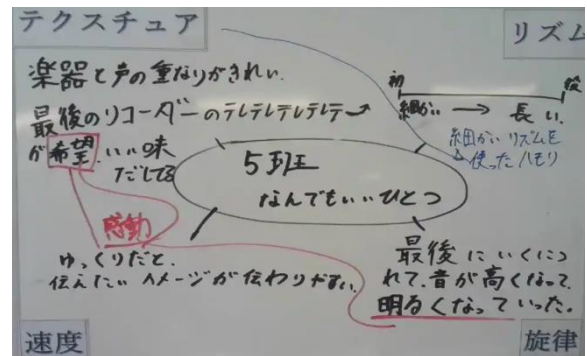 テクスチュア
リズム
楽器と声の重なりがきれい.
最後のリコーダーのテレテレテレテレテ
が希望.いい味
だしてる
初
後
細かい → 長い.
細かいリズムを
使ったハモリ
5班
なんでもいいひとつ
感動
ゆっくりだと、
伝えたいイメージが伝わりやすい.
最後にいくにつ
れて、音が高くなって、
明るくなっていった。
速度
旋律